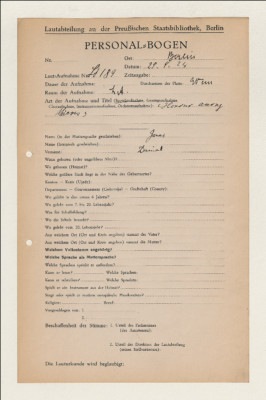 Lautabteilung an der Preußischen Staatsbibliothek, Berlin
PERSONAL-BOGEN
Nr. Ort: Berlin
Datum:
Laut-Aufnahme Nr. Zeitangabe:
Dauer der Aufnahme: Durchmesser der Platte:
Raum der Aufnahme: L.A.
Art der Aufnahme und Titel
Name (in der Muttersprache geschrieben): Jones
Name (lateinisch geschrieben):
Vorname: Daniel
Wann geboren (oder ungefähres Alter)?
Wo geboren (Heimat)?
Welche größere Stadt liegt in der Nähe des Geburtsortes?
Kanton — Kreis (Ujedz):
Departement — Gouvernement (Gubernija) — Grafschaft (County):
Wo gelebt in den ersten 6 Jahren?
Wo gelebt vom 7. bis 20. Lebensjahr?
Was für Schulbildung?
Wo die Schule besucht?
Wo gelebt vom 20. Lebensjahr?
Aus welchem Ort (Ort und Kreis angeben) stammt der Vater?
Aus welchem Ort (Ort und Kreis angeben) stammt die Mutter?
Welchem Volksstamm angehörig?
Welche Sprache als Muttersprache?
Welche Sprachen spricht er außerdem?
Kann er lesen? Welche Sprachen?
Kann er schreiben? Welche Sprachen?
Spielt er ein Instrument aus der Heimat?
Singt oder spielt er modern europäische Musikweisen?
Religion: Beruf:
Vorgeschlagen von: 1.
2.
Beschaffenheit der Stimme: 1. Urteil des Fachmannes
(des Assistenten):
2. Urteil des Direktors der Lautabteilung
(seines Stellvertreters):
Die Lauturkunde wird beglaubigt: